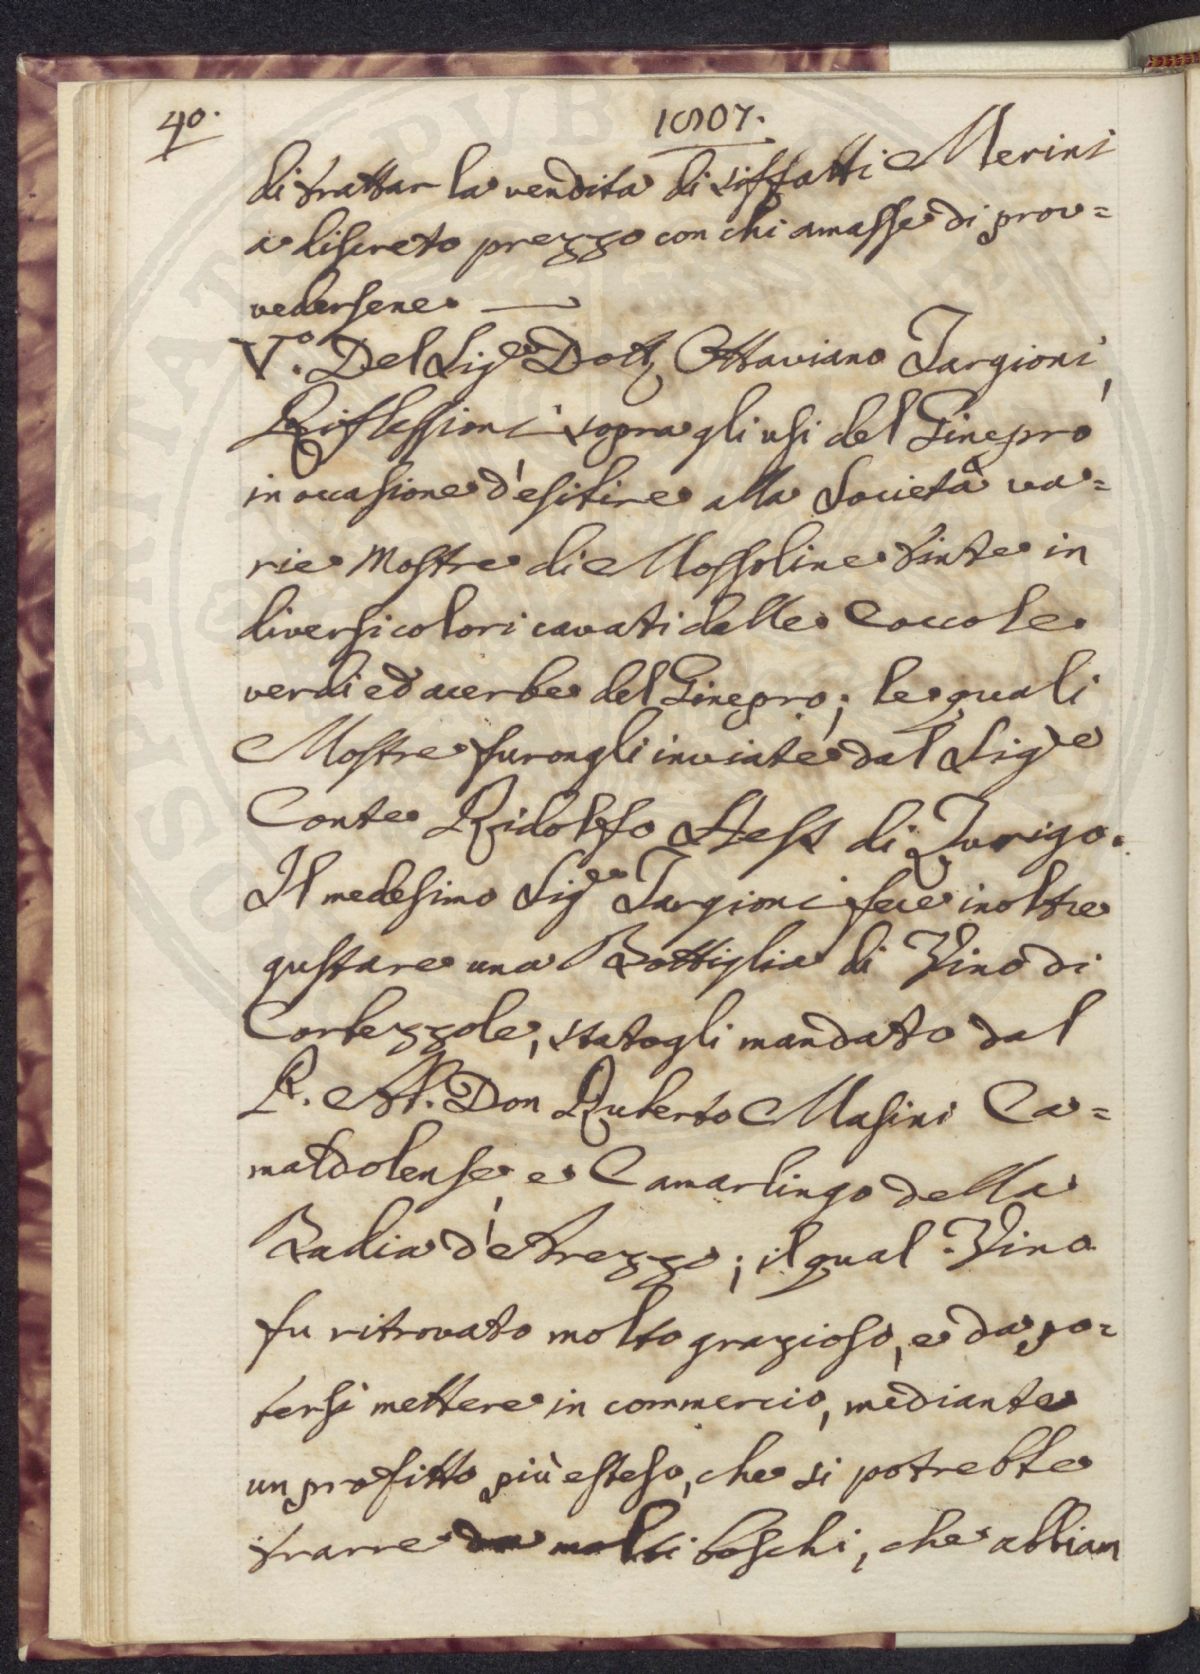 40.
1807.
di trattar la vendita di siffatti Merini
a discreto prezzo con chi amasse di prov=
vedersene. —
V.° Del Sig.re Dott. Ottaviano Targioni,
Riflessioni sopra gli usi del Ginepro
in occasione d'esibire alla Società va=
rie Mostre di Mossoline tinte in
diversi colori cavati dalle Coccole
verdi ed acerbe del Ginepro; le quali
Mostre furongli inviate dal Sig.re
Conte Ridolfo Hess di Zurigo.
Il medesimo Sig.re Targioni fece inoltre
gustare una Bottiglia di Vino di
Corbezzole, statogli mandato dal
P. Ab. Don Ruberto Masini Ca=
maldolense, e Camarlingo della
Badia d'Arezzo; il qual Vino
fu ritrovato molto grazioso, e da po=
tersi mettere in commercio, mediante
un profitto più esteso, che si potrebbe
trarre da molti boschi, che abbiam